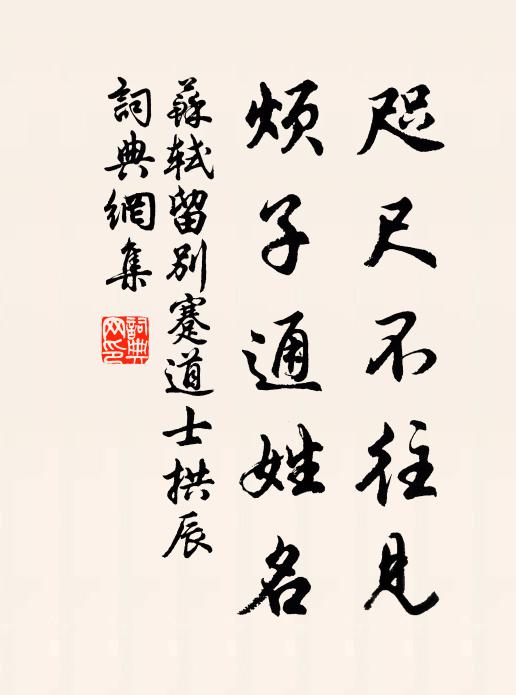 咫尺不往見
煩子通姓名
蘇軾留別蹇道士拱辰
詞典網集
詞典網印